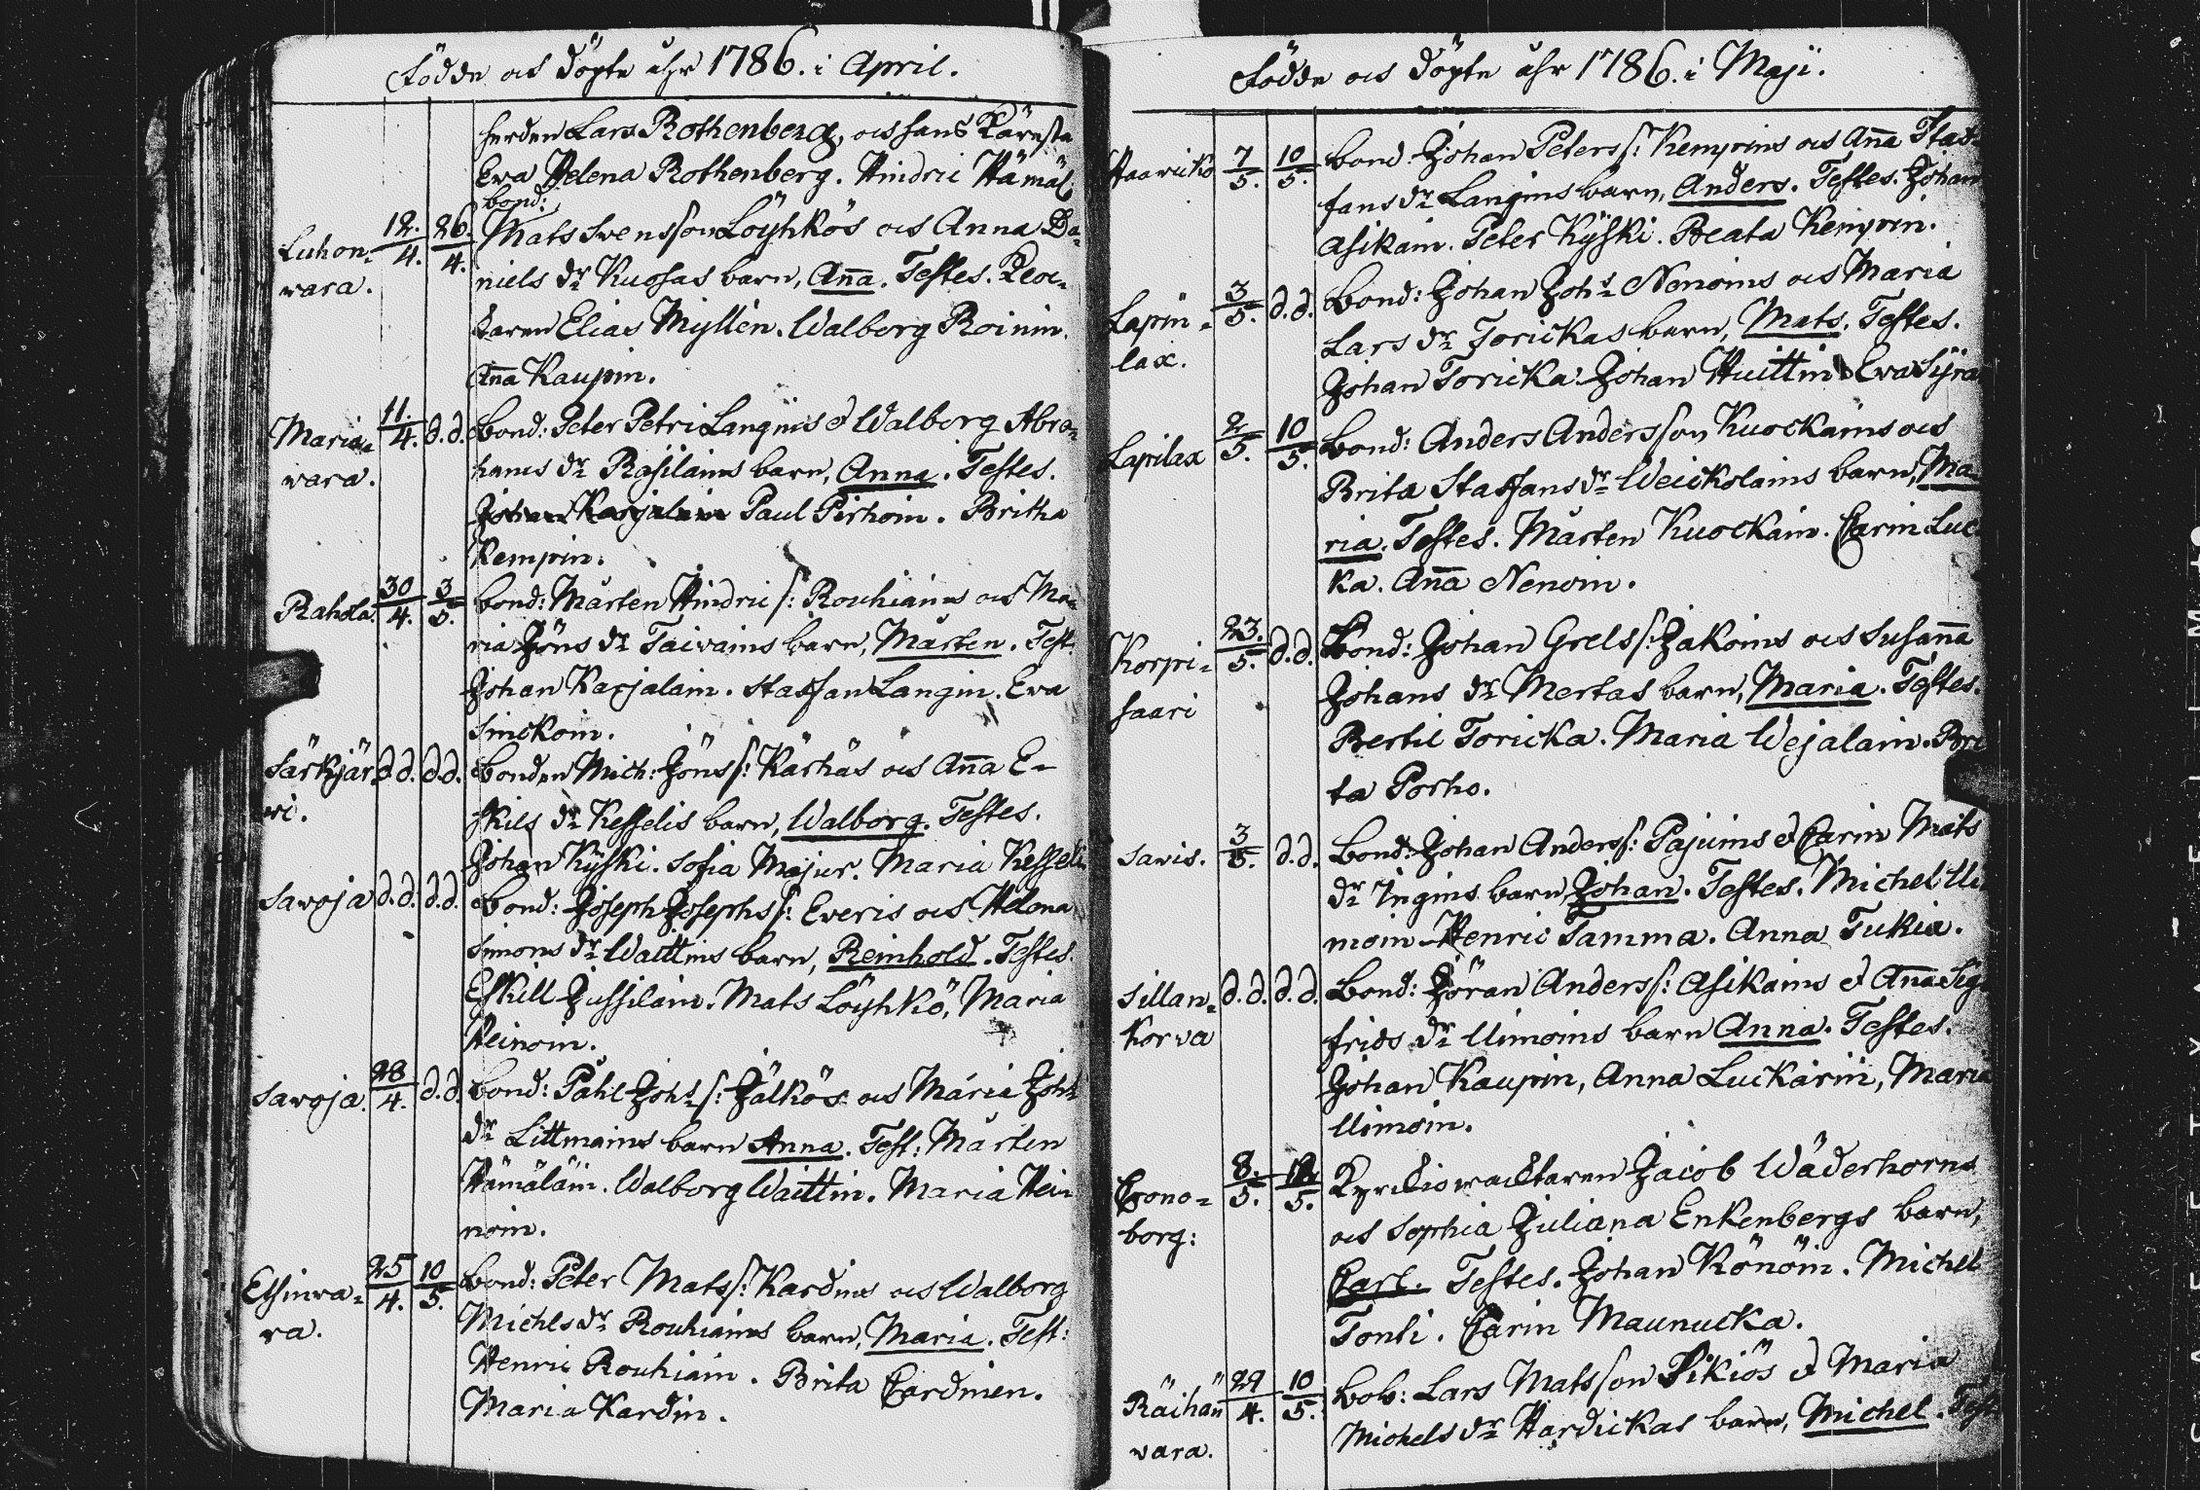 Födde och döpte åhr 1786. i April.
herden Lars Rothenberg, och hans Käresta
Eva Helena Rothenberg. Hindric Hämäl:
bond:
Luhon- 12./4. 26./4. Mats Svensson Löyhkös och Anna Da-
vara. niels dr Kuosas barn, Aña. Testes. Kloc-
karen Elias Myllén. Walborg Roinin.
Aña Kaupin.
Maria- 11./4. d.d. Bond: Peter Petri Langins & Walborg Abra-
vara. hams dr Rasilains barn, Anna. Testes.
Johan Karjalain Paul Pirhoin. Britha
Kempin.
Rahola. 30/4. 3/5. bond: Mårten Hindric s: Rouhiains och Ma-
ria Jöns dr Taivains barn, Mårten. Test:
Johan Karjalain. Staffan Langin. Eva
Sinckoin.
Särkjär- d.d. d.d. Bonden Mich: Jöns s: Kärhäs och Aña E-
vi. skils dr Kesselis barn, Walborg. Testes.
Johan Kyski. Sofia Majur. Maria Kesseli
Savoja d.d. d.d. Bond: Joseph Josephs s: Everis och Helena
Simons dr Waittins barn, Reinhold. Testes.
Eskill Jussilain. Mats Löyhkö, Maria
Heinoin.
Savoja. 28/4. d.d. bond: Påhl Joh: s: Jälkös och Maria Joh:
dr Littmains barn Anna. Test: Mårten
Hämäläin. Walborg Waittin. Maria Hei-
noin.
Elsinva- 25/4. 10/5. Bond: Peter Mats s: Kardins och Walborg
ra. Michls dr Rouhiains barn, Maria. Test:
Henric Rouhiain. Brita Cardinen.
Maria Kardin.
Födde och döpte åhr 1786. i Maji.
Haaricko 7/5. 10/5. bond: Johan Peters s: Kempins och Aña Staf-
fans dr Langins barn, Anders. Testes. Johan
Asikain. Peter Kyski. Beata Kempin.
Lapin- 3/5. d.d. Bond: Johan Joh: Nenoins och Maria
lax. Lars dr Torickas barn, Mats. Testes.
Johan Toricka. Johan Huittin. Eva Syrä
Lapilax 2/5. 10/5. Bond: Anders Andersson Kuockains och
Brita Staffans dr Weickolains barn, Ma-
ria. Testes. Mårten Kuockain. Carin Luc-
ka. Aña Nenoin.
Korpi- 23./5. d.d. Bond: Johan Grels s: Jakoins och Susaña
saari Johans dr Mertas barn, Maria. Testes.
Bertil Toricka. Maria Wejalain. Bri-
ta Porho.
Savis. 3/5. d.d. Bond: Johan Anders s: Pajuins & Carin Mats
dr Ingins barn, Johan. Testes. Michel Ui-
moin Henric Tamma. Anna Tukia.
Sillan- d.d. d.d. Bond: Jöran Anders s: Asikains & Aña Sig-
korva frids dr Uimoins barn Anna. Testes.
Johan Kaupin, Anna Luckarin, Maria
Uimoin.
Crono- 8./5. 12/5. Kyrckiowacktaren Jacob Wäderhorns
borg: och Sophia Juliana Enkenbergs barn,
Carl. Testes. Johan Könöin. Michel
Tonti. Carin Maunucka.
Räihän 29/4. 10/5. Bob: Lars Matsson Pikiös & Maria
vara. Michels dr Hardickas barn, Michel. Test